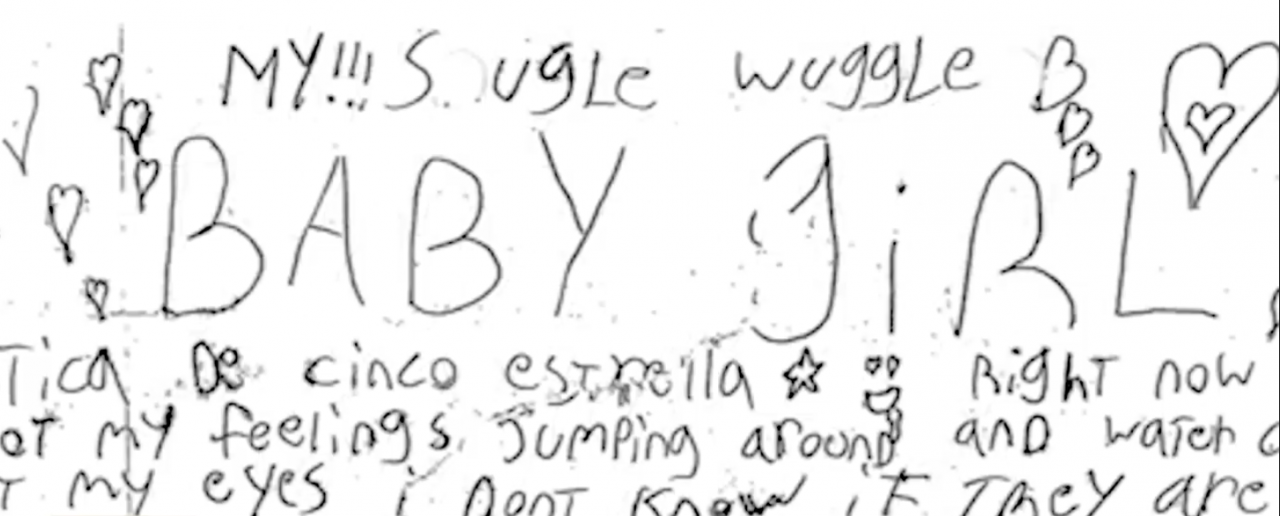 MY!!! SugLe wuggLe B
BABY GiRL
Tica De cinco estrella right now
ot my feelings jumping around and water
my eyes i Dont know if They are